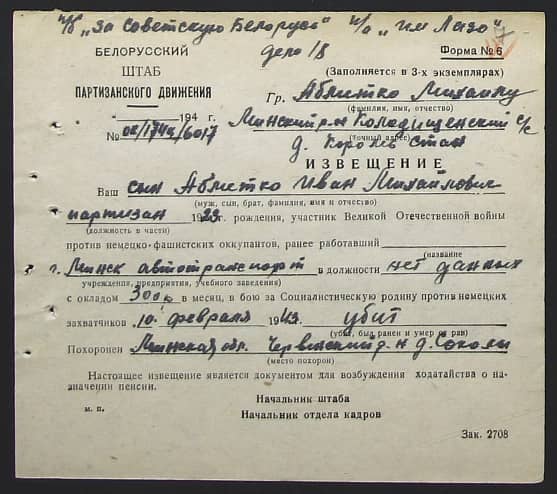 п/б „За Советскую Белорусь" п/о „им Лазо"
дело 18
БЕЛОРУССКИЙ
ШТАБ
ПАРТИЗАНСКОГО ДВИЖЕНИЯ
194 г.
№ 02/174ц/6017
Форма № 6
(Заполняется в 3-х экземплярах)
Гр. Аблетко Михаилу
(фамилия, имя, отчество)
Минский р-н Колодищенский с/с
(точный адрес)
д. Король Стан
ИЗВЕЩЕНИЕ
Ваш сын Аблетко Иван Михайлович
(муж, сын, брат, фамилия, имя и отчество)
партизан 1923 г. рождения, участник Великой Отечественной войны
(должность в части)
против немецко-фашистских оккупантов, ранее работавший
(название
г. Минск автотранспорт в должности нет данных
учреждения, предприятия, учебного заведения)
с окладом 300р в месяц, в бою за Социалистическую родину против немецких
захватчиков 10 февраля 1943г. убит
(убит, был ранен и умер от ран)
Похоронен Минская обл. Червенский р-н д. Соколы
(место похорон)
Настоящее извещение является документом для возбуждения ходатайства о назначении пенсии.
Начальник штаба
м. п.
Начальник отдела кадров
Зак. 2708